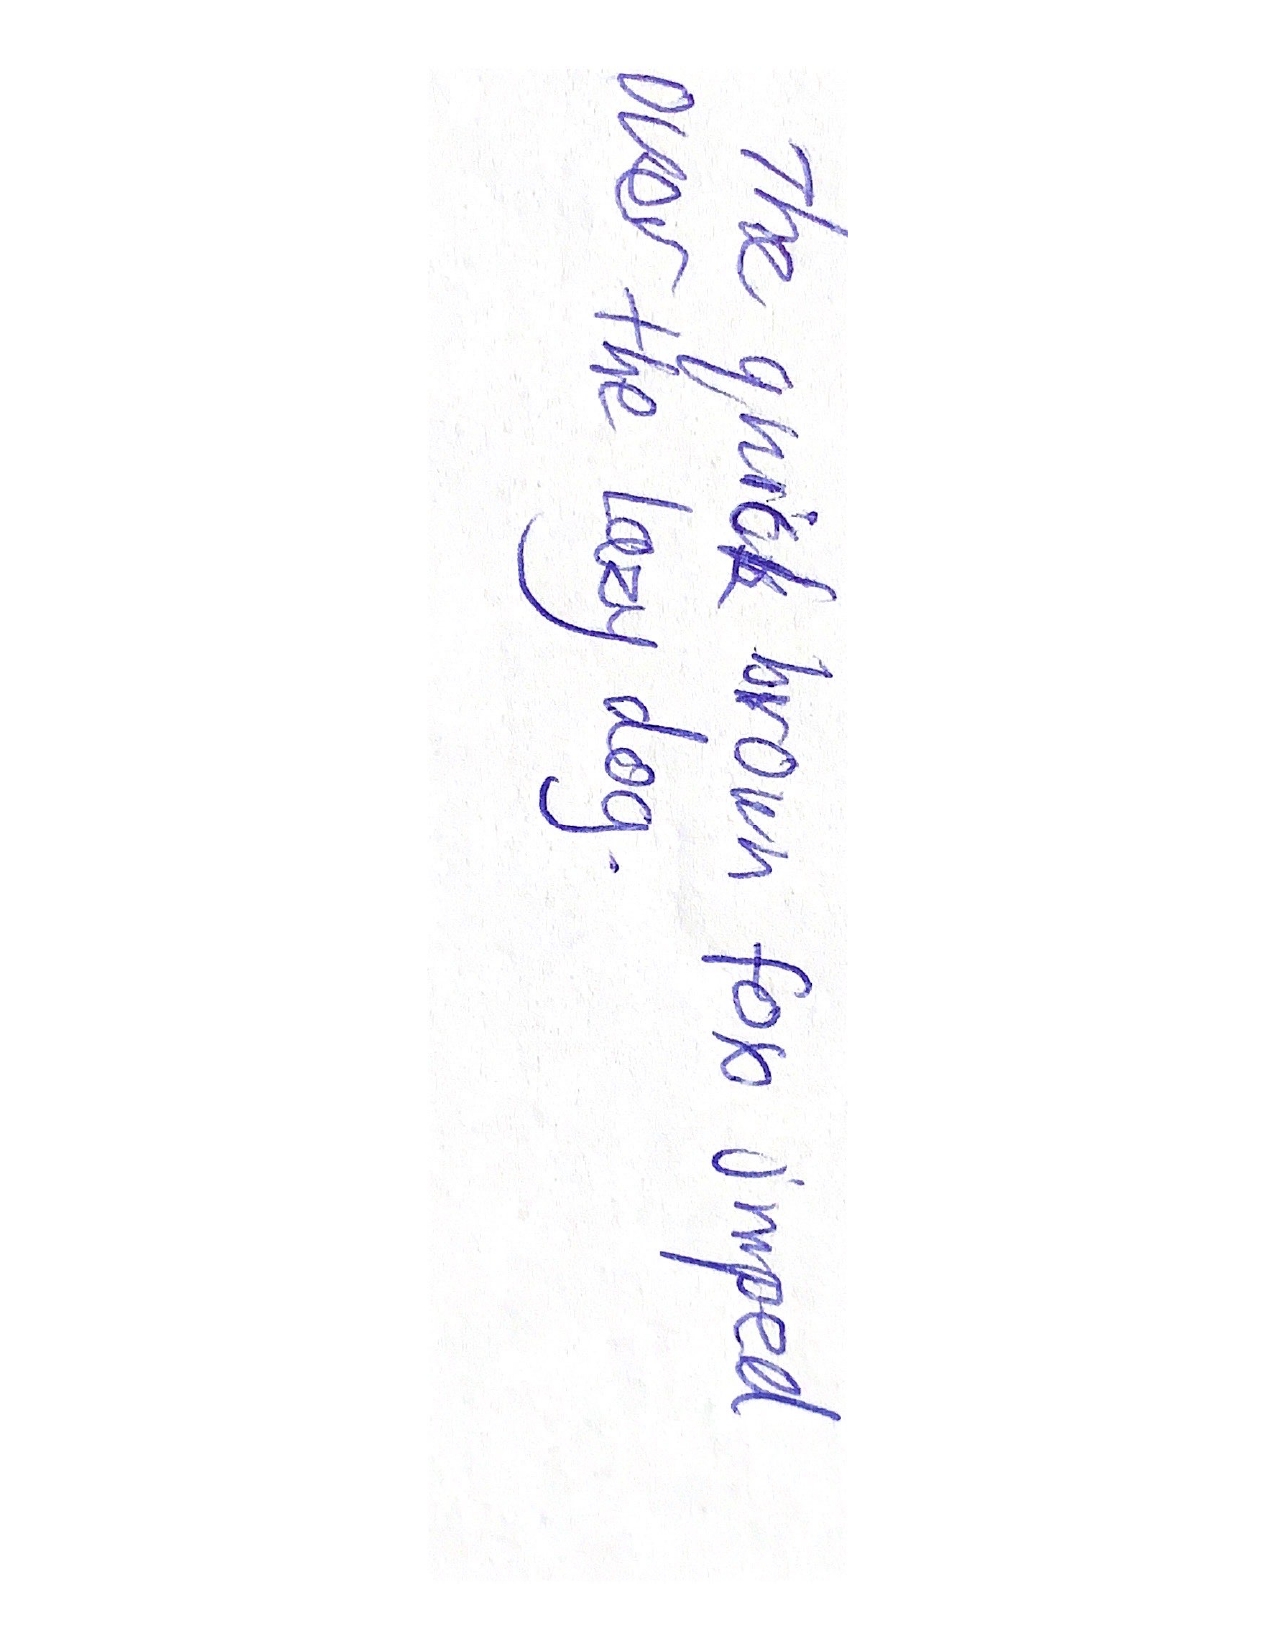 The quick brown fox jmped
over the lazy dog.